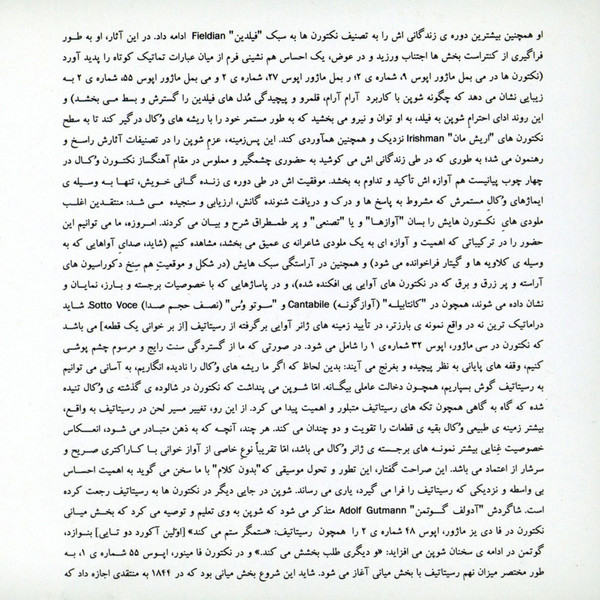 او همچنین بیشترین دوره ی زندگانی اش را به تصنیف نکتورن ها به سبک "فیلدین" Fieldian ادامه داد. در این آثار، او به طور
فراگیری از کنتراست بخش ها اجتناب ورزید و در عوض، یک احساس هم نشینی فرم از میان عبارات تماتیک کوتاه را پدید آورد
(نکتورن ها در می بمل ماژور اپوس ۹، شماره ی ۲؛ ر بمل ماژور اپوس ۲۷، شماره ی ۲ و می بمل ماژور اپوس ۵۵، شماره ی ۲ به
زیبایی نشان می دهد که چگونه شوپن با کاربرد آرام آرام، قلمرو و پیچیدگی مُدل های فیلدین را گسترش و بسط می بخشد) و
این روند ادای احترام شوپن به فیلد، به او توان و نیرو می بخشید که به طور مستمر خود را با ریشه های وُکال درگیر کند تا به سطح
نکتورن های "اریش مان" Irishman نزدیک و همچنین همآوردی کند. این پس‌زمینه، عزم شوپن را در تصنیفات آثارش راسخ و
رهنمون می شد؛ به طوری که در طی زندگانی اش می کوشید به حضوری چشمگیر و ملموس در مقام آهنگساز نکتورن وُکال در
چهار چوب پیانیست هم آوازه اش تأکید و تداوم به بخشد. موفقیت اش در طی دوره ی زنده گانی خویش، تنها به وسیله ی
ایماژهای وُکال مستمرش که مشروط به پاسخ ها و درک و دریافت شنونده گانش، ارزیابی و سنجیده می شد: منتقدین اغلب
ملودی های نکتورن هایش را بسان "آوازها" و یا "تصنعی" و پر طمطراق شرح و بیان می کردند. امروزه، ما می توانیم این
حضور را در ترکیباتی که اهمیت و آوازه ای به یک ملودی شاعرانه ی عمیق می بخشد، مشاهده کنیم (شاید، صدای آواهایی که به
وسیله ی کلاویه ها و گیتار فراخوانده می شود) و همچنین در آراستگی سبک هایش (در شکل و موقعیت هم سنخ دکوراسیون های
آراسته و پر زرق و برق که در نکتورن های آوایی پی افکنده شده)، و در پاساژهایی که با خصوصیات برجسته و بارز، نمایان و
نشان داده می شوند، همچون در "کانتابیله" (آوازگونه) Cantabile و "سوتو وُس" (نصف حجم صدا) Sotto Voce. شاید
دراماتیک ترین نه در واقع نمونه ی بارزتر، در تأیید زمینه های ژانر آوایی برگرفته از رسیتاتیف [از بر خوانی یک قطعه] می باشد
که نکتورن در سی ماژور، اپوس ۳۲ شماره ی ۱ را شامل می شود. در صورتی که ما از گستردگی سنت رایج و مرسوم چشم پوشی
کنیم، وقفه های پایانی به نظر پیچیده و بغرنج می آیند: بدین لحاظ که اگر ما ریشه های وُکال را نادیده انگاریم، به آسانی می توانیم
به رسیتاتیف گوش بسپاریم، همچون دخالت عاملی بیگانه. امّا شوپن می پنداشت که نکتورن در شالوده ی گذشته ی وُکال تنیده
شده که گاه به گاهی همچون تکه های رسیتاتیف متبلور و اهمیت پیدا می کرد. از این رو، تغییر مسیر لحن در رسیتاتیف به واقع،
بیشتر زمینه ی طبیعی وُکال بقیه ی قطعات را تقویت و دو چندان می کند. هر چند، آنچه که به ذهن متبادر می شود، انعکاس
خصوصیت غنایی بیشتر نمونه های برجسته ی ژانر وُکال می باشد، امّا تقریباً نوع خاصی از آواز خوانی با کاراکتری صریح و
سرشار از اعتماد می باشد. این صراحت گفتار، این تطور و تحول موسیقی که"بدون کلام" با ما سخن می گوید به اهمیت احساس
بی واسطه و نزدیکی که رسیتاتیف را فرا می گیرد، یاری می رساند. شوپن در جایی دیگر در نکتورن ها به رسیتاتیف رجعت کرده
است. شاگردش "آدولف گوتمن" Adolf Gutmann متذکر می شود که شوپن به وی تعلیم و توصیه می کرد که بخش میانی
نکتورن در فا دی یز ماژور، اپوس ۴۸ شماره ی ۲ را همچون رسیتاتیف: «ستمگر ستم می کند» [اوّلین آکورد دو تایی] بنوازد،
گوتمن در ادامه ی سخنان شوپن می افزاید: «و دیگری طلب بخشش می کند.» و در نکتورن فا مینور، اپوس ۵۵ شماره ی ۱، به
طور مختصر میزان نهم رسیتاتیف با بخش میانی آغاز می شود. شاید این شروع بخش میانی بود که در ۱۸۴۴ به منتقدی اجازه داد که